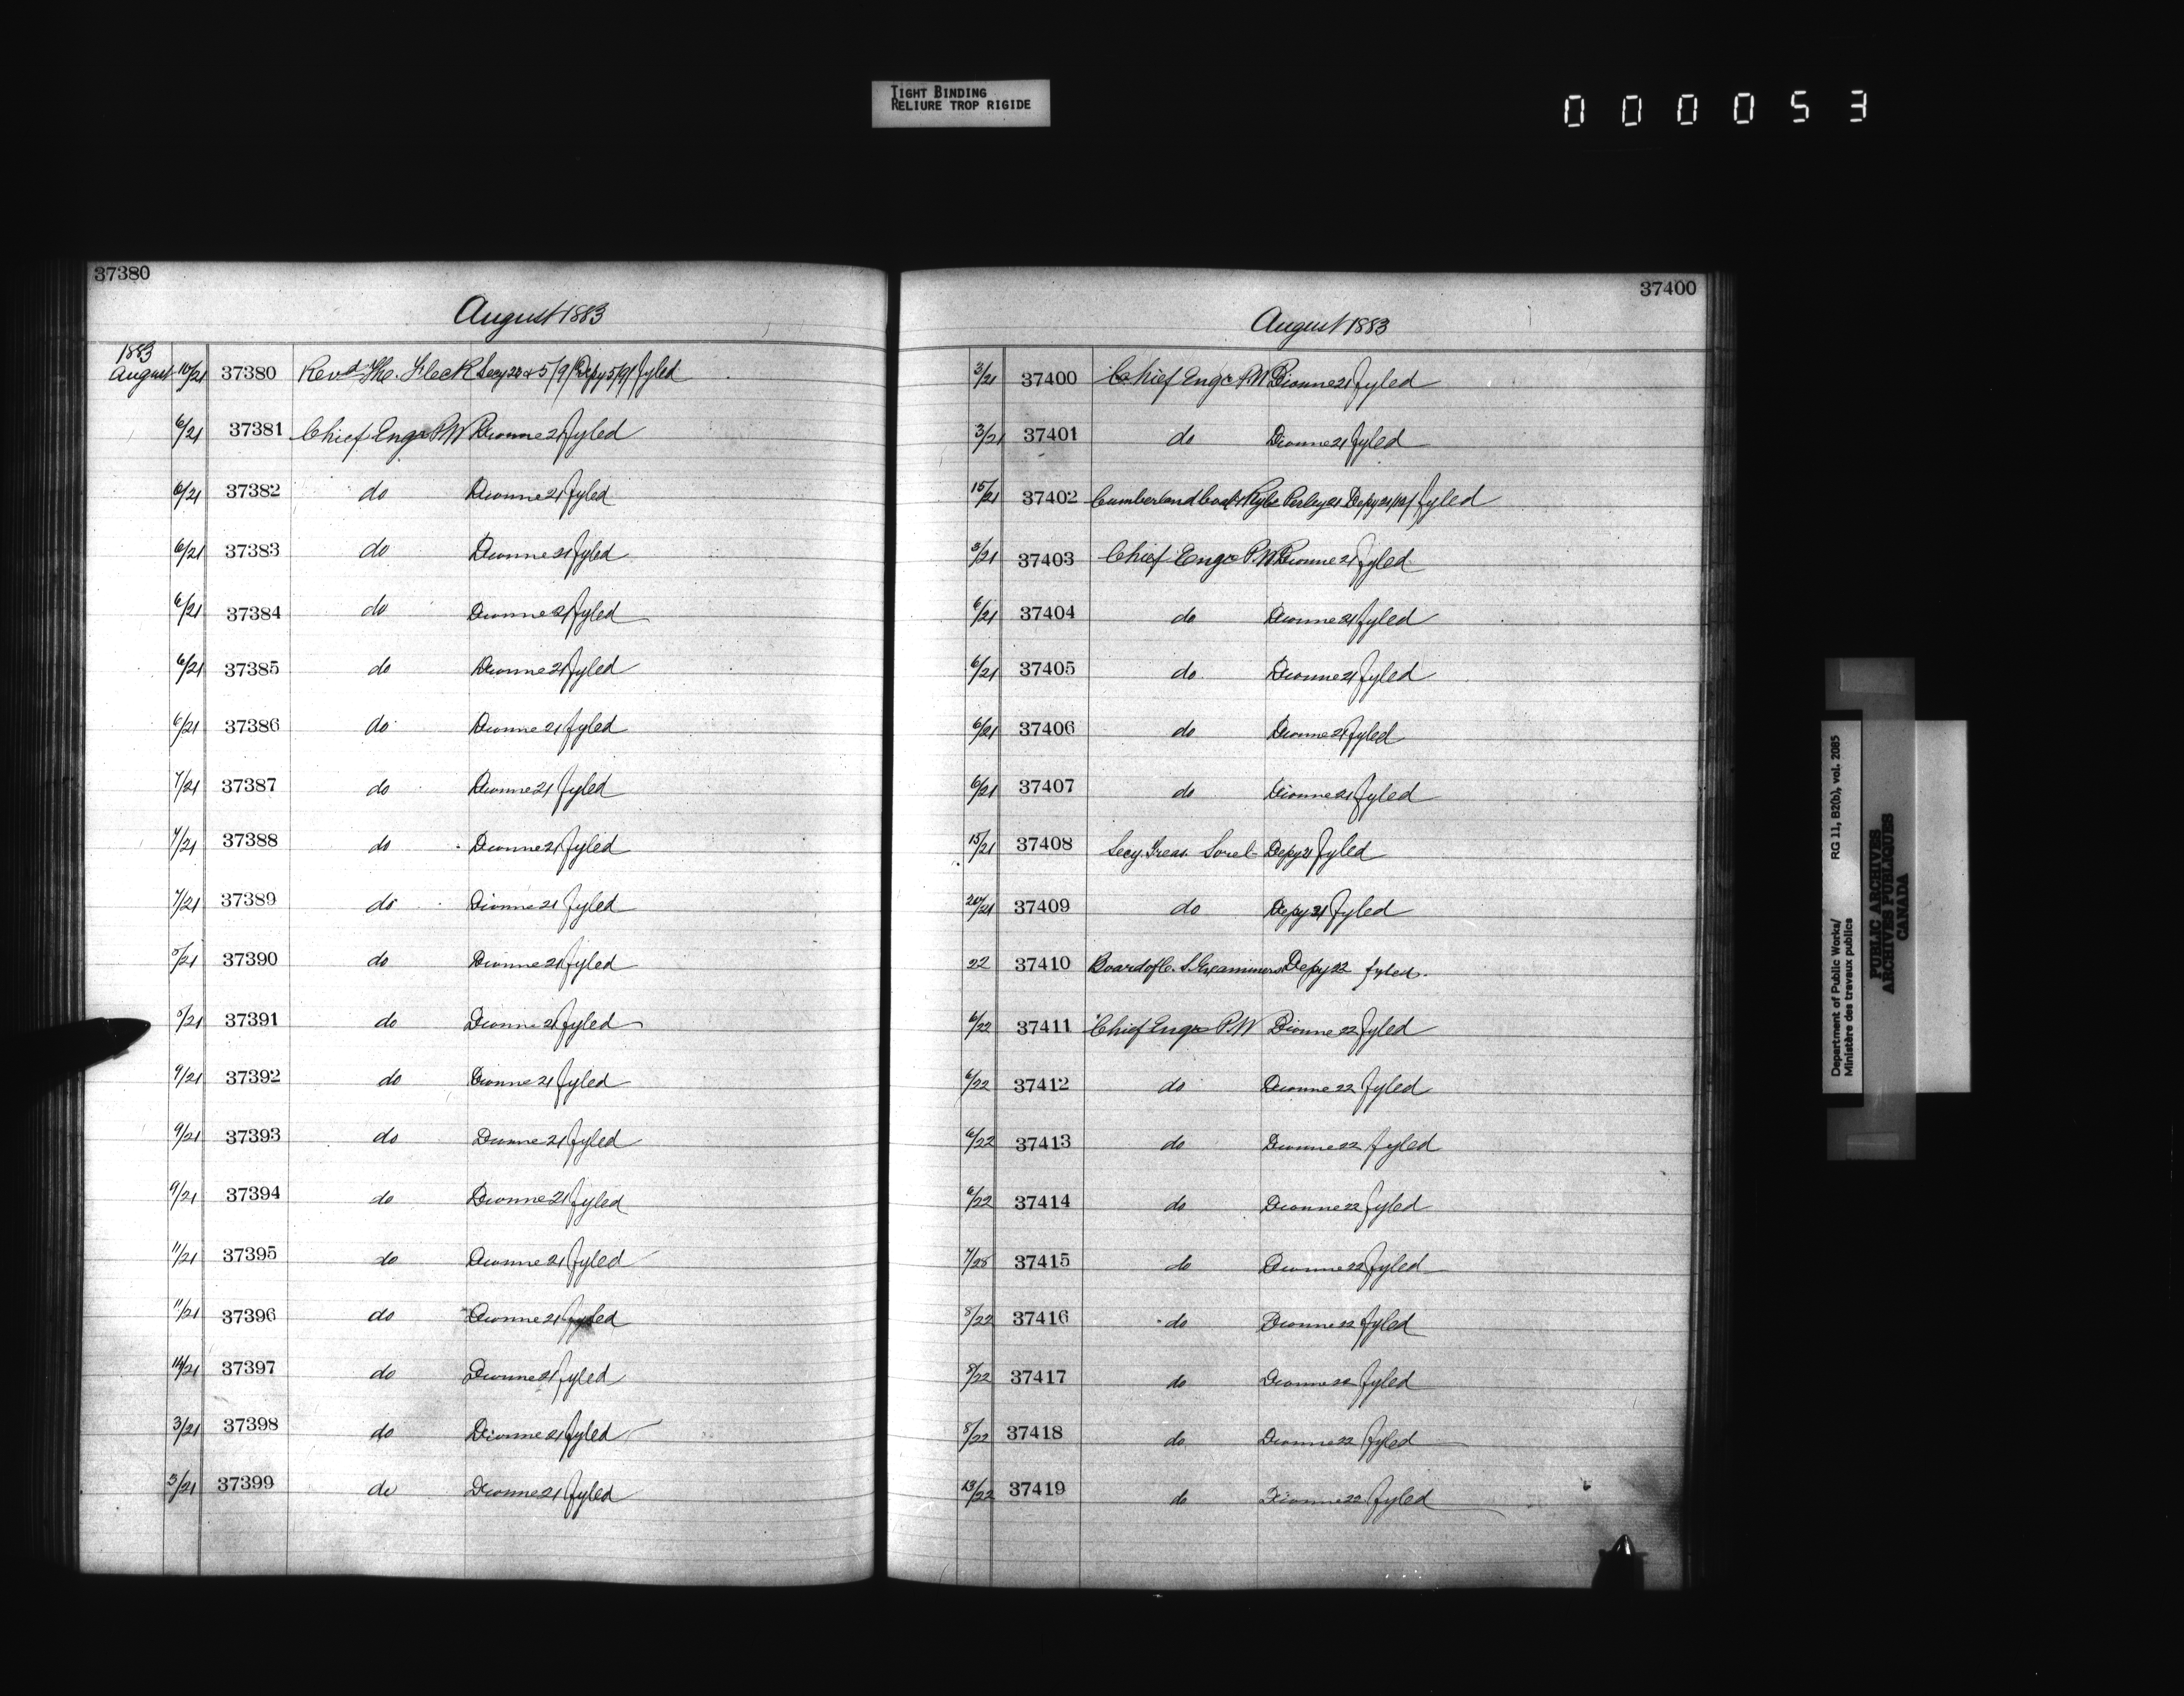 TIGHT BINDING
RELIURE TROP RIGIDE
000053
37380
August 1883
1883
August 10/21 37380 Revd Fleck Secy 22 & 5/9/ Depy 5/9/ fyled
6/21 37381 Chief Engr P.W Dionne 21 fyled
6/21 37382 do Dionne 21 fyled
6/21 37383 do Dionne 21 fyled
6/21 37384 do Dionne 21 fyled
6/21 37385 do Dionne 21 fyled
6/21 37386 do Dionne 21 fyled
7/21 37387 do Dionne 21 fyled
7/21 37388 do Dionne 21 fyled
7/21 37389 do Dionne 21 fyled
37390 do Dionne 21 fyled
37391 do Dionne 21 fyled
9/21 37392 do Dionne 21 fyled
9/21 37393 do Dionne 21 fyled
9/21 37394 do Dionne 21 fyled
11/21 37395 do Dionne 21 fyled
11/21 37396 do Dionne 21 fyled
37397 do Dionne 21 fyled
3/21 37398 do Dionne 21 fyled
3/21 37399 do Dionne 21 fyled
37400
August 1883
3/21 37400 Chief Engr P.W Dionne 21 fyled
3/21 37401 do Dionne 21 fyled
15/21 37402 Cumberland Coal & Ry Co Perley 21 Depy 21/12/ fyled
37403 Chief Engr P.W Dionne 21 fyled
6/21 37404 do Dionne 21 fyled
6/21 37405 do Dionne 21 fyled
6/21 37406 do Dionne 21 fyled
6/21 37407 do Dionne 21 fyled
15/21 37408 Secy. Treas. Sorel Depy 21 fyled
20/21 37409 do Depy 21 fyled
22 37410 Board of C. S. Examiners Depy 22 fyled.
6/22 37411 Chief Engr P.W Dionne 22 fyled
6/22 37412 do Dionne 22 fyled
6/22 37413 do Dionne 22 fyled
6/22 37414 do Dionne 22 fyled
37415 do Dionne 22 fyled
8/22 37416 do Dionne 22 fyled
8/22 37417 do Dionne 22 fyled
8/22 37418 do Dionne 22 fyled
13/22 37419 do Dionne 22 fyled
Department of Public Works/ RG 11, B2(b), vol. 2085
Ministère des travaux publics
PUBLIC ARCHIVES
ARCHIVES PUBLIQUES
CANADA